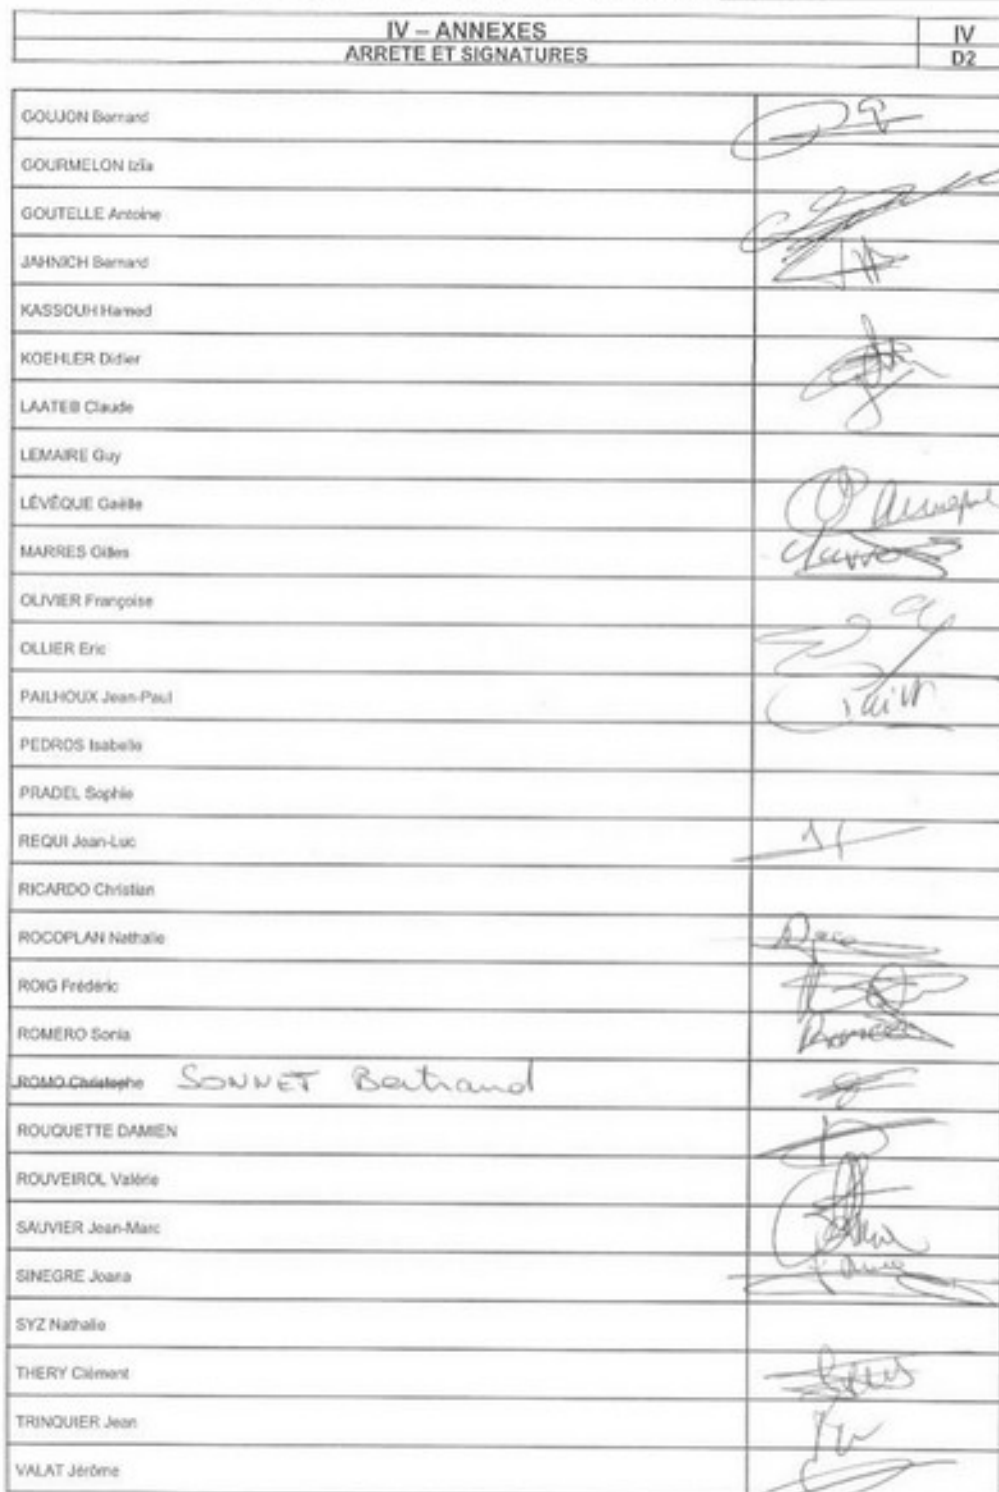 IV – ANNEXES
IV
ARRETE ET SIGNATURES
D2
GOUJON Bernard
GOURMELON Izïa
GOUTELLE Antoine
JAHNICH Bernard
KASSOUH Hamed
KOEHLER Didier
LAATEB Claude
LEMAIRE Guy
LÉVÊQUE Gaëlle
MARRES Gilles
OLIVIER Françoise
OLLIER Eric
PAILHOUX Jean-Paul
PEDROS Isabelle
PRADEL Sophie
REQUI Jean-Luc
RICARDO Christian
ROCOPLAN Nathalie
ROIG Frédéric
ROMERO Sonia
ROMO Christophe SONNET Bertrand
ROUQUETTE DAMIEN
ROUVEIROL Valérie
SAUVIER Jean-Marc
SINEGRE Joana
SYZ Nathalie
THERY Clément
TRINQUIER Jean
VALAT Jérôme